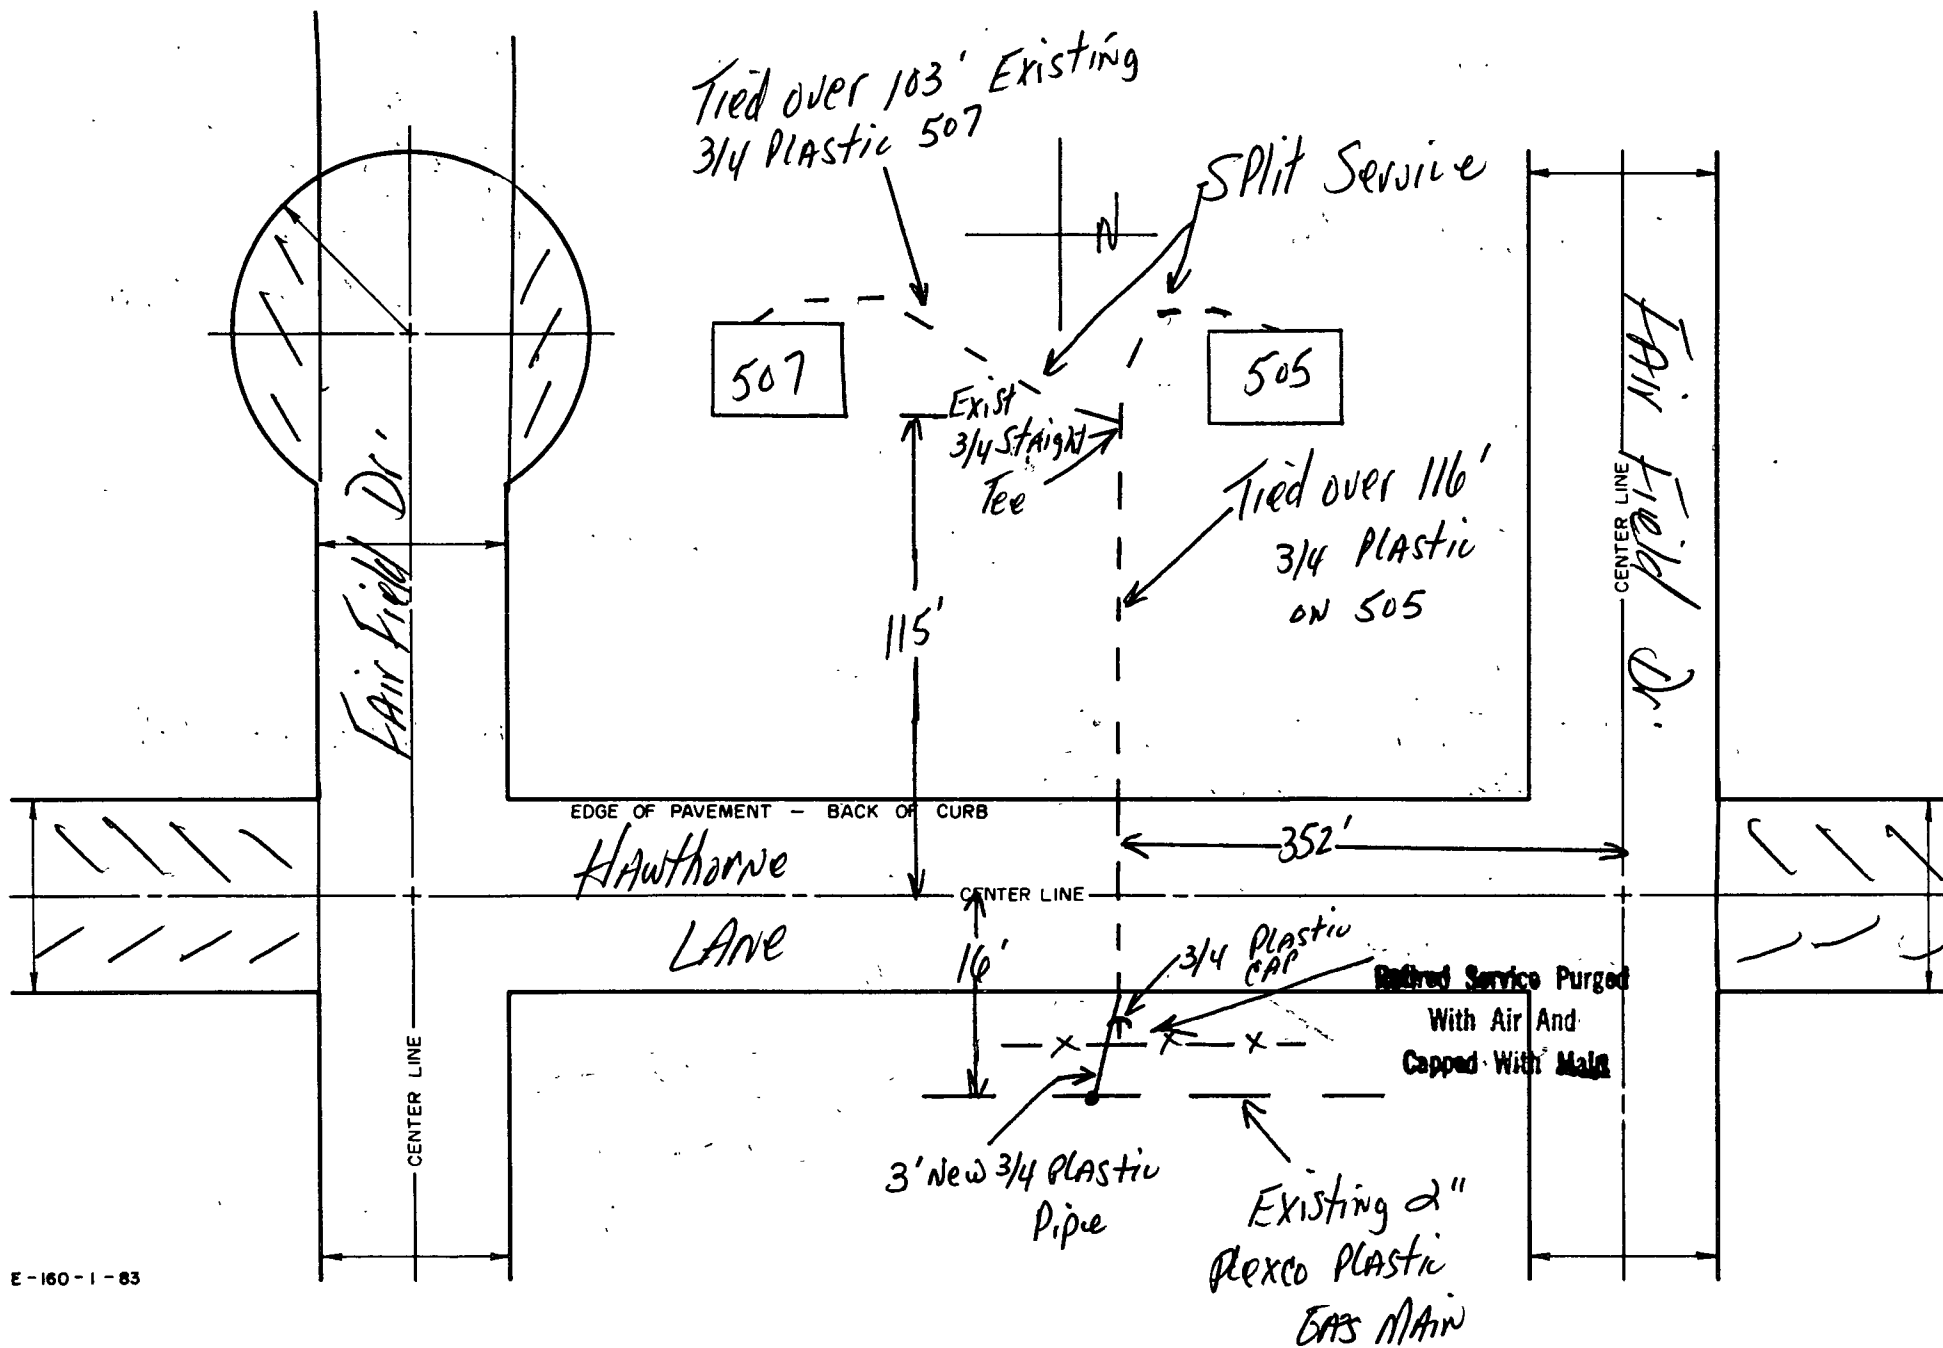 Tied over 103' Existing
3/4 Plastic 507
Split Service
N
507
505
Exist
3/4 Straight
Tee
Tied over 116'
3/4 Plastic
on 505
115'
Fair Field Dr.
Fair Field Dr.
CENTER LINE
EDGE OF PAVEMENT — BACK OF CURB
Hawthorne
Lane
352'
CENTER LINE
16'
3/4 Plastic
CAP
Retired Service Purged
With Air And
Capped With Main
CENTER LINE
3' New 3/4 Plastic
Pipe
Existing 2"
Plexco Plastic
Gas Main
E-160-1-83